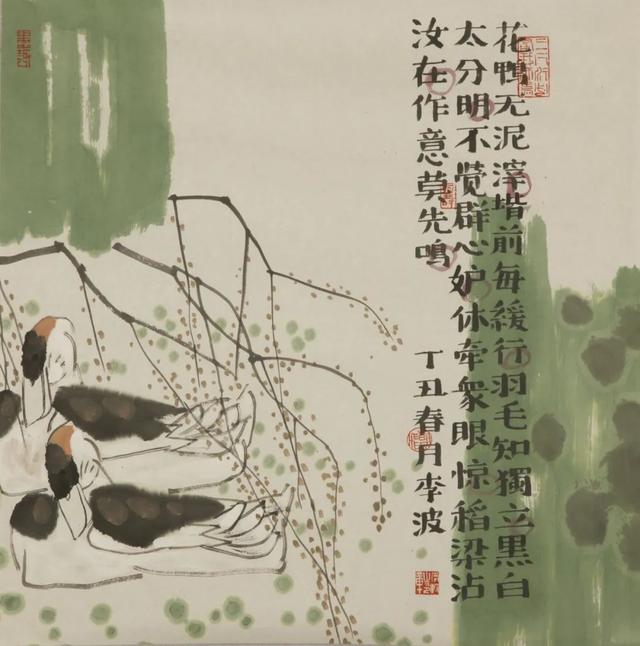 花鴨无泥滓堦前每緩行羽毛知獨立黑白
太分明不觉群心妒休牵衆眼惊稻梁沾
汝在作意莫先鳴
丁丑春月李波